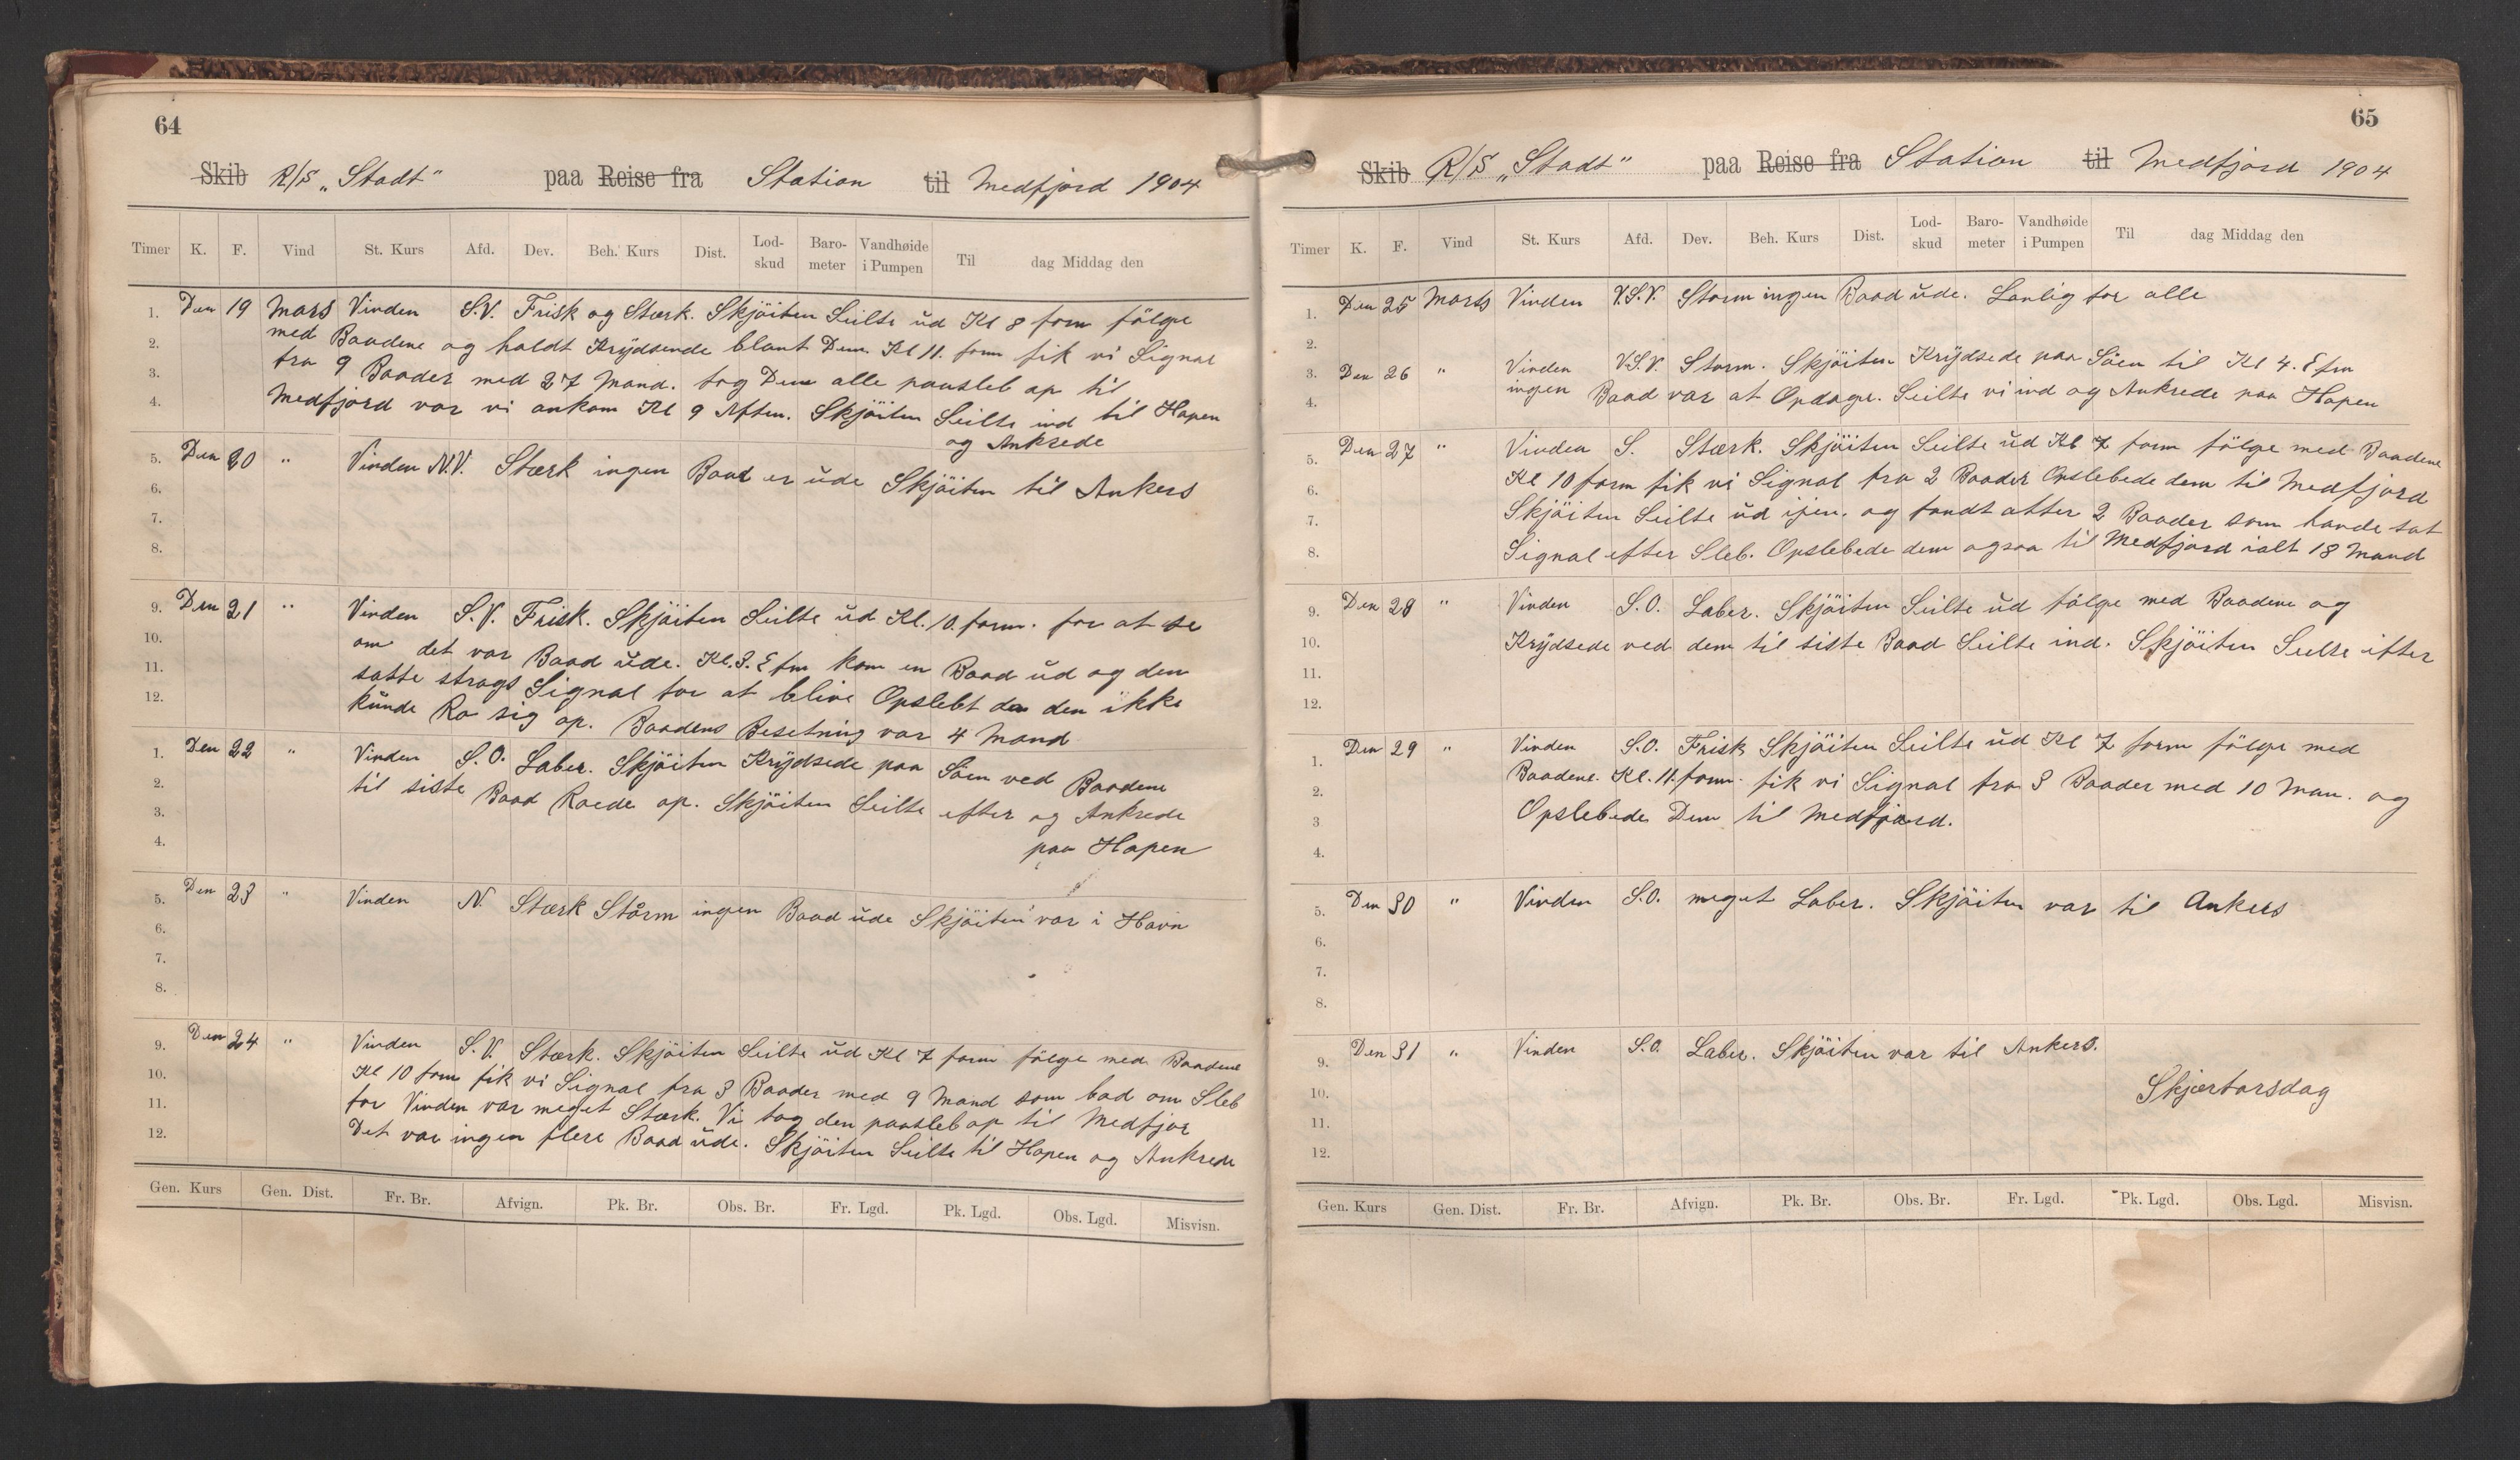 64
Skib R/S „Stadt" paa Reise fra Station til Medfjord 1904
Timer K. F. Vind St. Kurs Afd. Dev. Beh. Kurs Dist. Lod-skud Baro-meter Vandhøide i Pumpen Til dag Middag den
1. Den 19 Mars Vinden S.V. Frisk og Stærk. Skjöiten Seilte ud Kl 8 form fölge
2. med Baadene og holdt Krydsende blant Dem Kl 11. form fik vi Signal
3. fra 9 Baader med 27 Mand. tog Dem alle paasleb op til
4. Medfjord vor vi ankom Kl 9 Aften. Skjöiten Seilte ind til Hopen
og Ankrede
5. Den 20 " Vinden N.V. Stærk ingen Baad er ude Skjöiten til Ankers
6.
7.
8.
9. Den 21 " Vinden S.V. Frisk. Skjöiten Seilte ud Kl. 10. form. for at se
10. om det var Baad ude. Kl. 3. Efm kom en Baad ud og den
11. satte strags Signal for at blive Opslebt da den ikke
12. kunde Ro sig op. Baadens Besetning var 4 Mand
1. Den 22 " Vinden S.O. Laber. Skjöiten Krydsede paa Söen ved Baadene
2. til siste Baad Roede op. Skjöiten Seilte efter og Ankrede
3.
4. paa Hopen
5. Den 23 " Vinden N. Stærk Storm ingen Baad ude Skjöiten var i Havn
6.
7.
8.
9. Den 24 " Vinden S.V. Stærk. Skjöiten Seilte ud Kl 7 form fölge med Baadene
10. Kl 10 form fik vi Signal fra 3 Baader med 9 Mand som bad om Sleb
11. for Vinden var meget Stærk. Vi tog den paasleb op til Medfjor
12. Det var ingen flere Baad ude. Skjöiten Seilte til Hopen og Ankrede
Gen. Kurs Gen. Dist. Fr. Br. Afvign. Pk. Br. Obs. Br. Fr. Lgd. Pk. Lgd. Obs. Lgd. Misvisn.
65
Skib R/S „Stadt" paa Reise fra Station til Medfjord 1904
Timer K. F. Vind St. Kurs Afd. Dev. Beh. Kurs Dist. Lod-skud Baro-meter Vandhøide i Pumpen Til dag Middag den
1. Den 25 Marts Vinden V.S.V. Storm ingen Baad ude. Lanlig for alle
2.
3. Den 26 " Vinden V.S.V. Storm. Skjöiten Krydsede paa Söen til Kl 4. Efm
4. ingen Baad var at Opdage. Seilte vi ind og Ankrede paa Hopen
5. Den 27 " Vinden S. Stærk. Skjöiten Seilte ud Kl 7 form fölge med Baadene
6. Kl 10 form fik vi Signal fra 2 Baader Opslebede dem til Medfjord
7. Skjöiten Seilte ud ijen. og fandt atter 2 Baader som havde sat
8. Signal efter Sleb. Opslebede dem ogsaa til Medfjord ialt 18 Mand
9. Den 28 " Vinden S.O. Laber. Skjöiten Seilte ud fölge med Baadene og
10. Krydsede ved dem til siste Baad Seilte ind. Skjöiten Seilte efter
11.
12.
1. Den 29 " Vinden S.O. Frisk Skjöiten Seilte ud Kl 7 form fölge med
2. Baadene. Kl. 11. form. fik vi Signal fra 3 Baader med 10 Man. og
3 Opslebede Dem til Medfjord.
4.
5. Den 30 " Vinden S.O. meget Laber. Skjöiten var til Ankers
6.
7.
8.
9. Den 31 " Vinden S.O. Laber. Skjöiten var til Ankers.
10. Skjærtorsdag
11.
12.
Gen. Kurs Gen. Dist. Fr. Br. Afvign. Pk. Br. Obs. Br. Fr. Lgd. Pk. Lgd. Obs. Lgd. Misvisn.